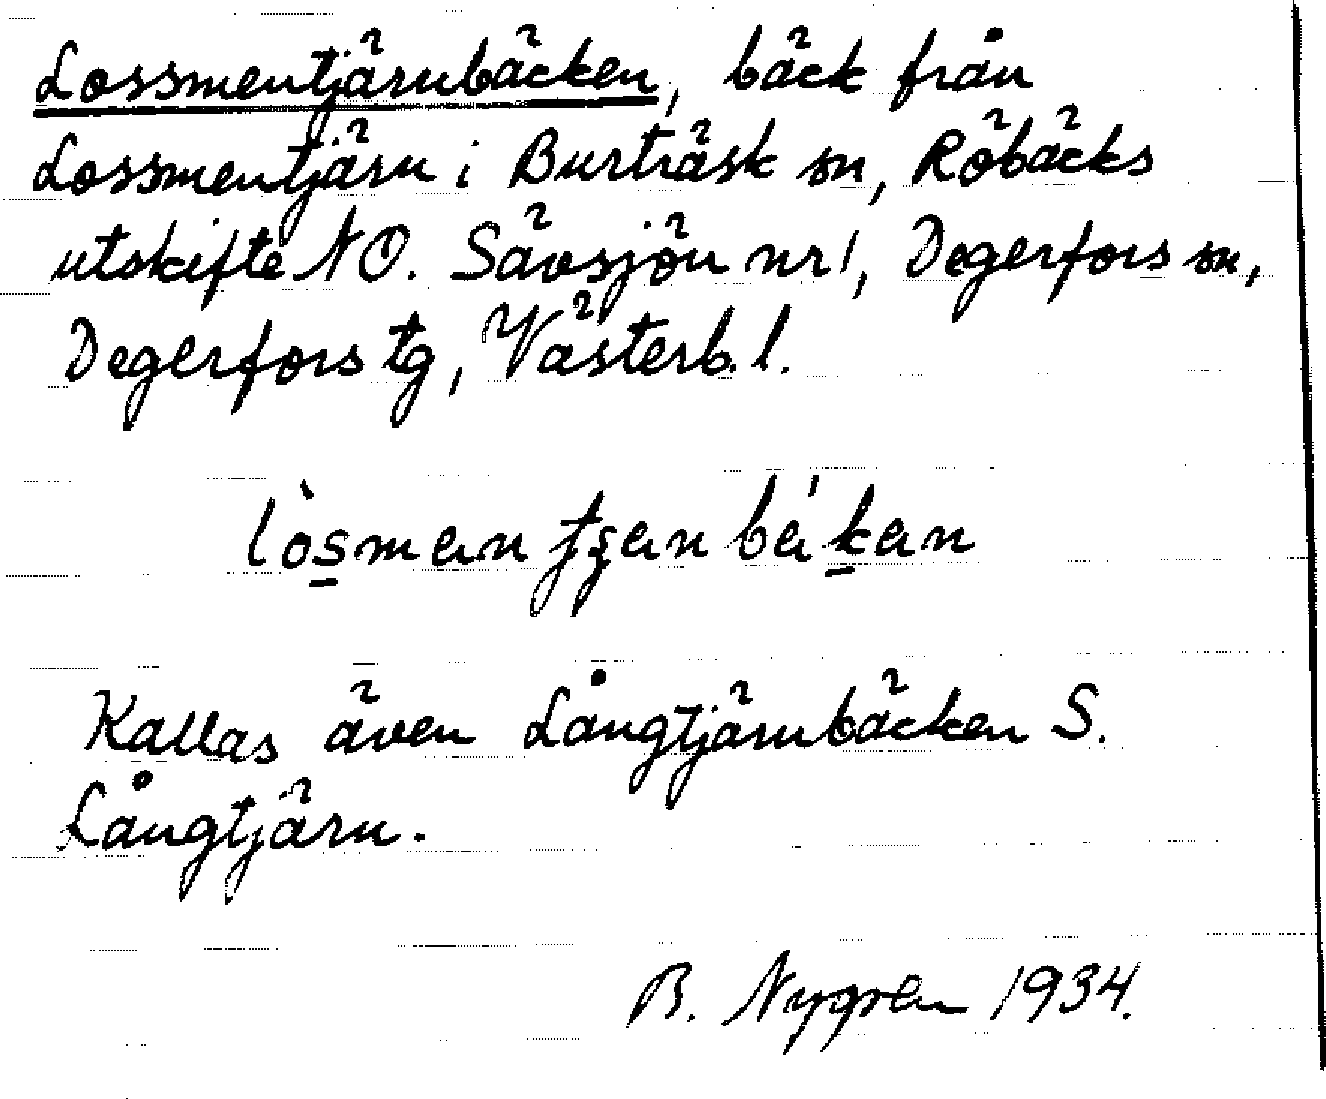 Lossmentjärnbäcken, bäck från
Lossmentjärn i Burträsk sn, Röbäcks
utskifte NO. Sävsjön nr 1, Degerfors sn,
Degerfors tg, Västerb. l.
Kallas även Långtjärnbäcken S.
Långtjärn.
B. Nygren 1934.